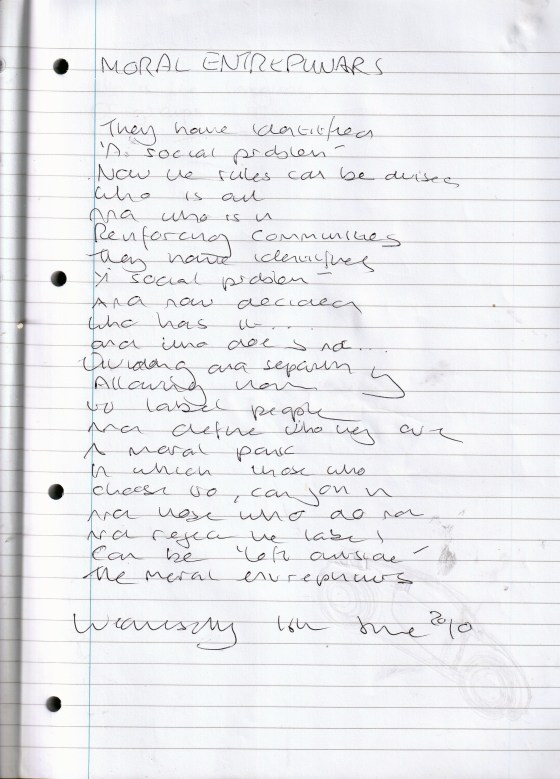 MORAL ENTREPUNARS
They have identified
'A social problem'
Now the rules can be devised
Who is out
And who is in
Reinforcing communities
They have identified
'A social problem'
And now decided
Who has it...
and who does not...
Dividing and separating
Allowing them
to label people
And define who they are
A moral panic
In which those who
choose to, can join in
And those who do not
And reject the label
Can be 'left outside'
The moral entrepunars
Wednesday 16th June 2010